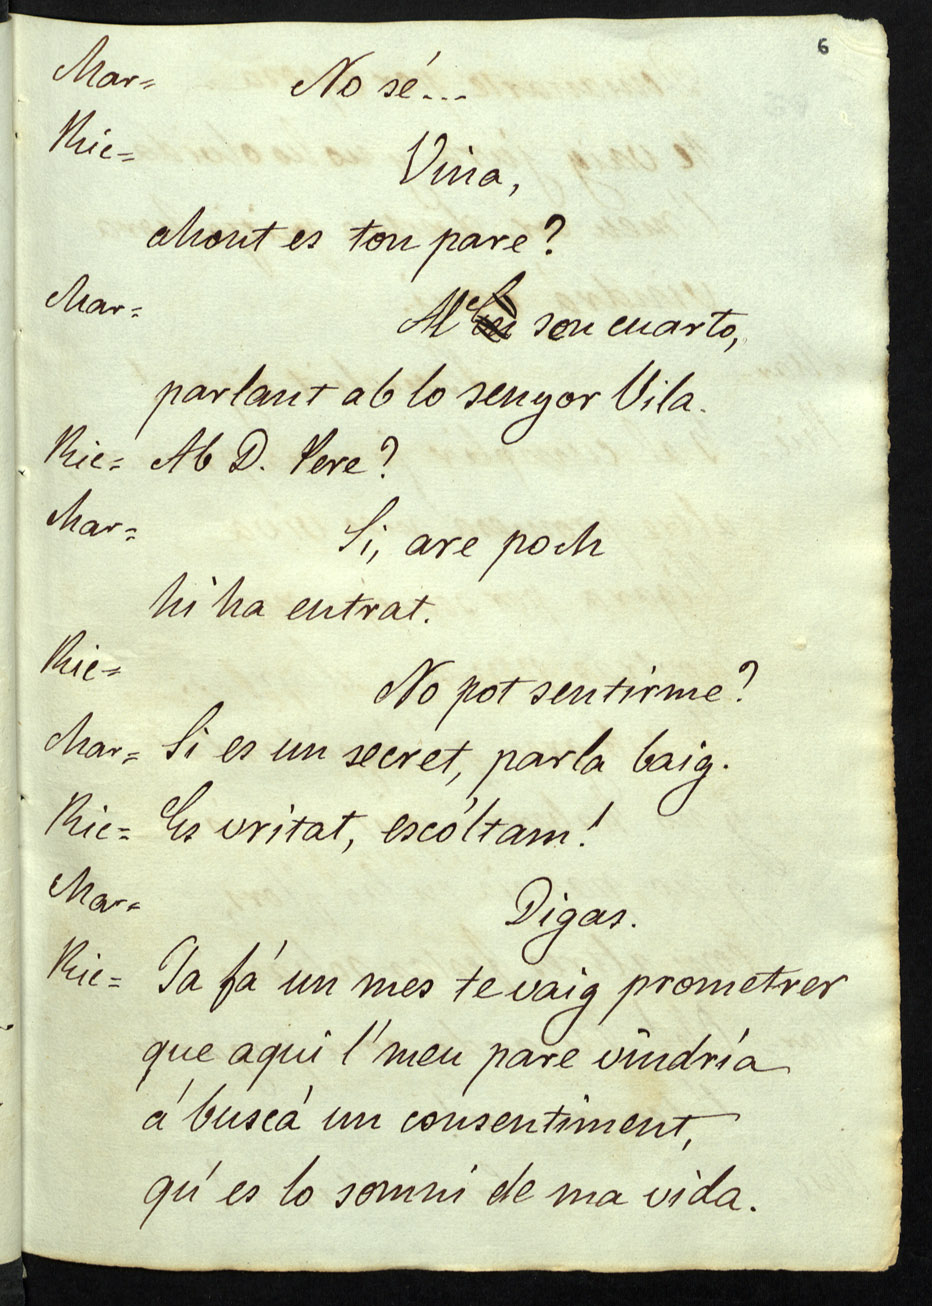 6
Mar= No sé...
Ric= Vina,
ahont es ton pare?
Mar= Al son cuarto,
parlant ab lo senyor Vila.
Ric= Ab D. Pere?
Mar= Si, are poch
hi ha entrat.
Ric= No pot sentirme?
Mar= Si es un secret, parla baig.
Ric= Es vritat, escóltam!
Mar= Digas.
Ric= Ja fá un mes te vaig prometrer
que aqui l' meu pare vindría
á buscá un consentiment,
qu' es lo somni de ma vida.